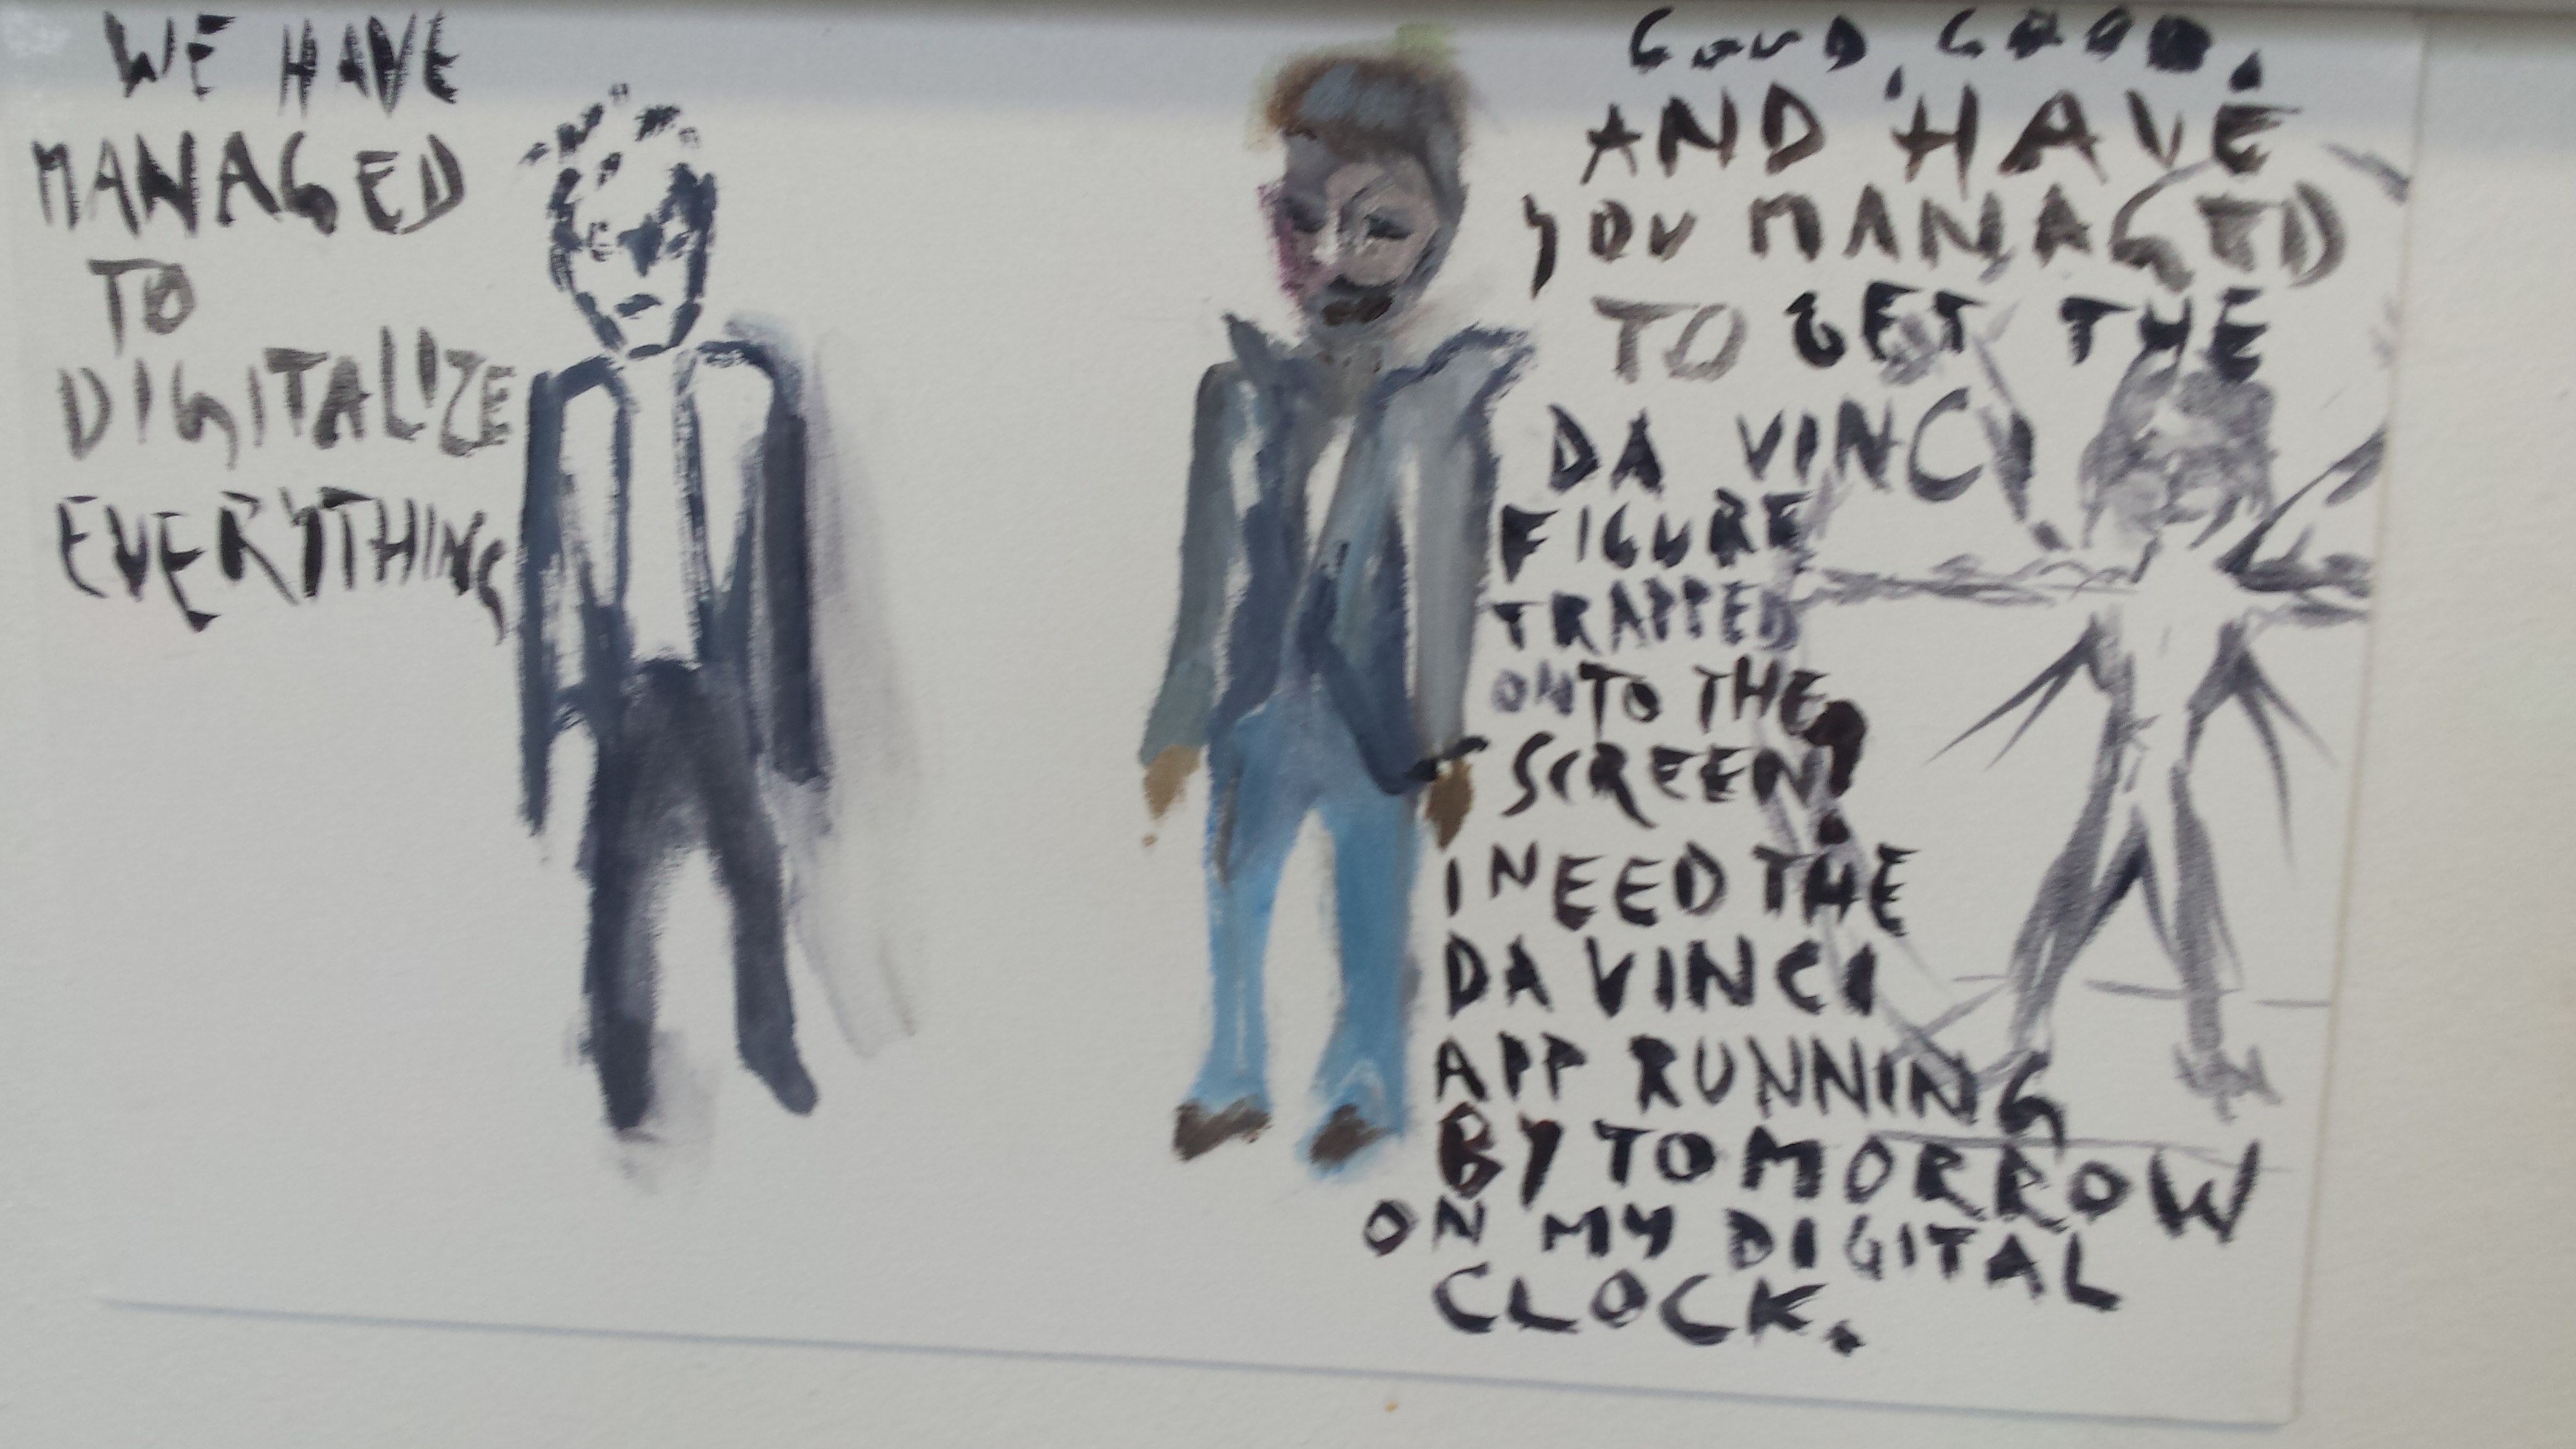 WE HAVE
MANAGED
TO
DIGITALIZE
EVERYTHING
GOOD, GOOD.
AND HAVE
YOU MANAGED
TO GET THE
DA VINCI
FIGURE
TRAPPED
ONTO THE
SCREEN?
I NEED THE
DA VINCI
APP RUNNING
BY TOMORROW
ON MY DIGITAL
CLOCK.